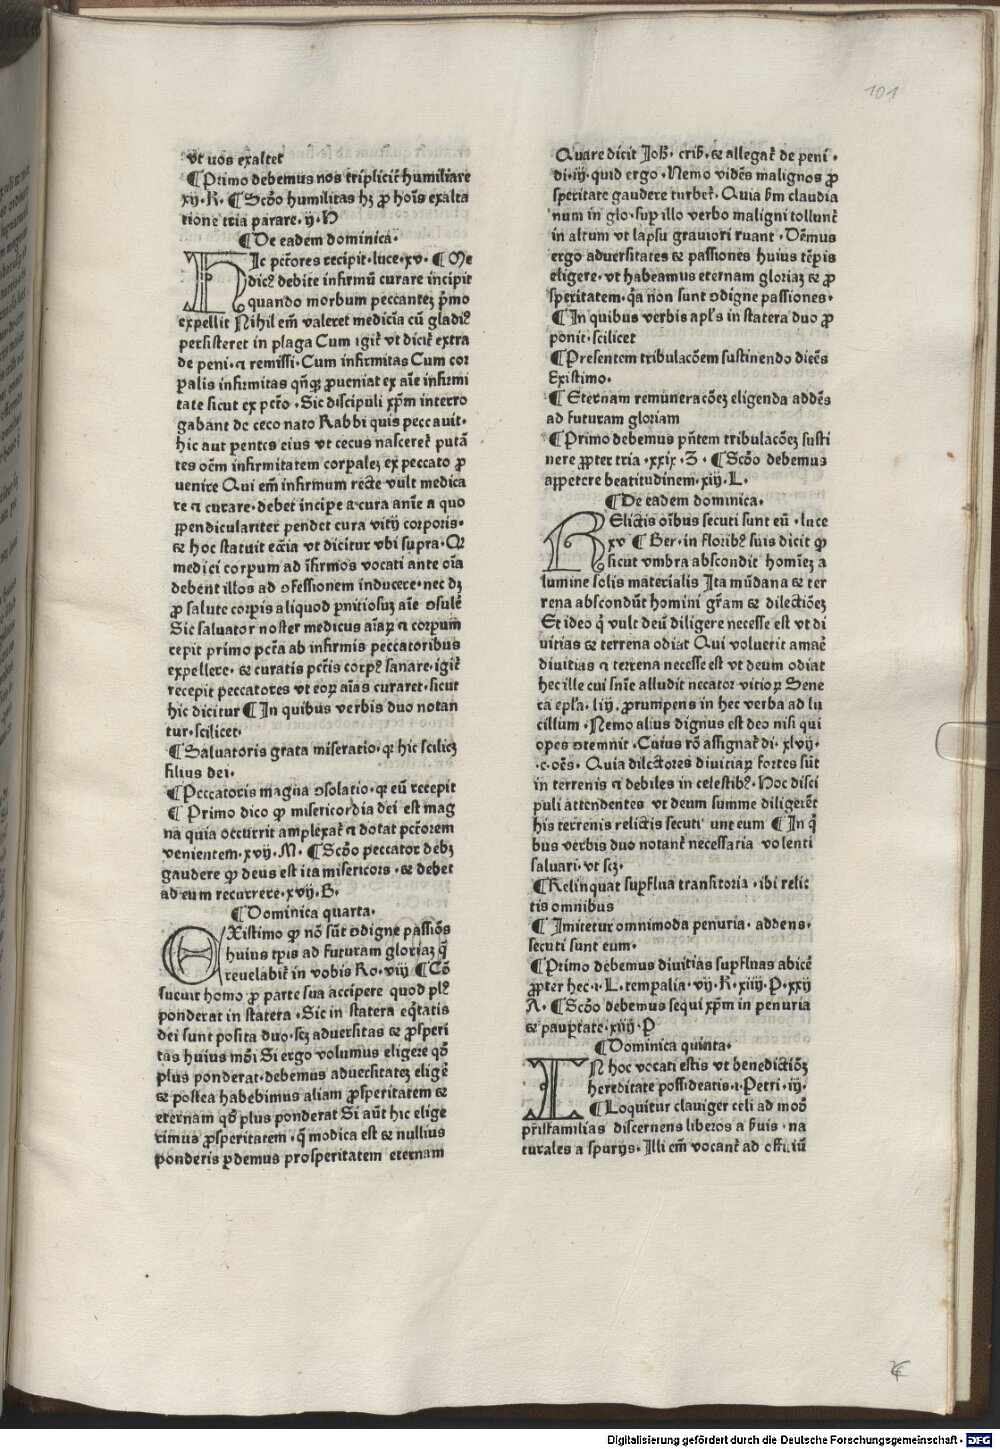 101
vt uos exaltet
¶ Primo debemus nos tripliciť humiliare
xij· K· ¶ Scďo humilitas hꝫ ꝓ hoīs exalta
tione tria parare· ij· H
¶ De eadem dominica·
HIc pctōres recipit·luce·xv· ¶ Me
dicꝰ debite infirmū curare incipit
quando morbum peccanteꝫ pͥmo
expellit Nihil em̄ valeret medicīa cū gladiꝰ
persisteret in plaga Cum igiť vt diciť extra
de peni·⁊ remissi·Cum infirmitas Cum cor
palis infirmitas qn̄qꝫ ꝓueniat ex aīe infirmi
tate sicut ex pctō ·Sic discipuli xp̄m interro
gabant de ceco nato Rabbi quis peccauit·
hic aut pentes eius vt cecus nascereť putā
tes oēm infirmitatem corpaleꝫ ex peccato ꝓ
uenire Qui em̄ infirmum recte vult medica
re ⁊ curare·debet incipe a cura anīe a quo
ꝑpendiculariter pendet cura vitij corporis·
& hoc statuit eccīa vt dicitur vbi supra·Qꝛ
medici corpum ad īfirmos vocati ante oīa
debent illos ad ↄfessionem inducere·nec dꝫ
ꝓ salute corpis aliquod ꝑnitiosuꝫ aīe ↄsulē
Sic saluator noster medicus aīaꝝ ⁊ corpum
cepit primo pctā ab infirmis peccatoribus
expellere· & curatis pctīs corpꝰ sanare·igiť
recepit peccatores vt eoꝝ aīas curaret·sicut
hic dicitur ¶ In quibus verbis duo notan
tur·scilicet·
¶ Saluatoris grata miseratio·qꝛ hic scilicꝫ
filius dei·
¶ Peccatoris magna ↄsolatio·qꝛ eū recepit
¶ Primo dico ꝙ misericordia dei est mag
na quia occurrit amplexať ⁊ dotat pctōrem
venientem·xvij·M· ¶ Scďo peccator debꝫ
gaudere ꝙ deus est ita misericors · & debet
ad eum recurrere·xvij·B·
¶ Dominica quarta·
EXistimo ꝙ nō sūt ↄdigne passiōs
huius tp̄is ad futuram gloriaꝫ q̄
reuelabiť in vobis Ro·viij ¶ Cō
sueuit homo ꝓ parte sua accipere quod plꝰ
ponderat in statera ·Sic in statera eq̄tatis
dei sunt posita duo·scꝫ aduersitas & ꝓsperi
tas huius mōi Si ergo volumus eligere qō
plus ponderat·debemus aduersitateꝫ eligē
& postea habebimus aliam ꝓsperitatem &
eternam qō plus ponderat Si aūt hic elige
rimus ꝓsperitatem ·q̄ modica est & nullius
ponderis ꝑdemus prosperitatem eternam
Quare dicit Joħ· crib̄· & allegať de peni ·
di·iij·quid ergo ·Nemo vidēs malignos ꝓ
speritate gaudere turbeť· Quia bm̄ claudia
num in glo·sup illo verbo maligni tollunť
in altum vt lapsu grauiori ruant ·Dēmus
ergo aduersitates & passiones huius tēpis
eligere·vt habeamus eternam gloriaꝫ & ꝓ
speritatem·q̄a non sunt ↄdigne passiones·
¶ In quibus verbis apl̄s in statera duo ꝓ
ponit·scilicet
¶ Presentem tribulacōem sustinendo dicēs
Existimo·
¶ Eternam remuneracōeꝫ eligenda addēs
ad futuram gloriam
¶ Primo debemus pn̄tem tribulacōeꝫ susti
nere ꝓpter tria ·xxix·Z· ¶ Scďo debemus
appetere beatitudinem·xiij·L·
¶ De eadem dominica·
RElictis oībus secuti sunt eū ·luce
xv ¶ Ber·in floribꝰ suis dicit ꝙ
sicut vmbra abscondit homīeꝫ a
lumine solis materialis Ita mūdana & ter
rena abscondūt homini grām & dilectiōeꝫ
Et ideo q̄ vult deū diligere necesse est vt di
uitias & terrena odiat Qui voluerit amaē
diuitias ⁊ terrena necesse est vt deum odiat
hec ille cui sn̄ie alludit necator vitioꝝ Sene
ca epl̄a· liij· ꝓrumpens in hec verba ad lu
cillum ·Nemo alius dignus est deo nisi qui
opes ↄtemnit ·Cuius rō assignať di·xlvij·
·c·oēs· Quia dilectores diuitiaꝝ fortes sūt
in terrenis ⁊ debiles in celestibꝰ·Hoc disci
puli attendentes vt deum summe diligerēt
his terrenis relictis secuti unt eum ¶ In q̄
bus verbis duo notanť necessaria volenti
saluari·vt scꝫ·
¶ Relinquat supflua transitoria ·ibi relic
tis omnibus
¶ Imitetur omnimoda penuria· addens·
secuti sunt eum·
¶ Primo debemus diuitias supfluas abicē
ꝓpter hec·i·L·tempalia·vij·K·xiiij·P·xxij
A· ¶ Scďo debemus sequi xp̄m in penuria
& pauptate·xiij·P
¶ Dominica quinta·
IN hoc vocati estis vt benedictiōꝫ
hereditate possideatis·i·Petri·iij·
¶ Loquitur clauiger celi ad moō
pr̄isfamilias discernens liberos a b̄uis ·na
turales a spurijs· Illi em̄ vocanť ad offi.iū
Digitalisierung gefördert durch die Deutsche Forschungsgemeinschaft - DFG